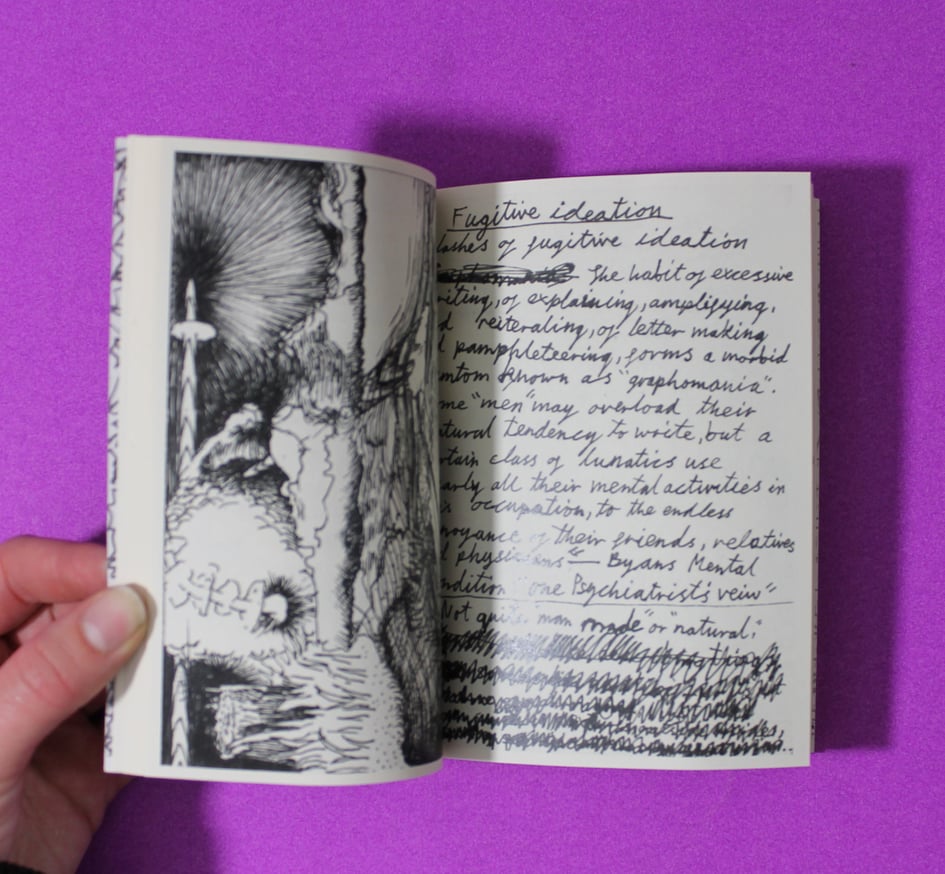 Fugitive ideation
lashes of fugitive ideation
The habit of excessive
riting, of explaining, amplifying,
d reiteraling, of letter making
d pampphleteering, forms a morbid
mtom known as "graphomania".
me "men" may overload their
atural tendency to write, but a
rtain class of lunatics use
arly all their mental activities in
occupation, to the endless
noyance of their friends, relatives
d physicians" — Byans Mental
ndition "one Psychiatrist's veiw"
Not quite man made" or "natural."